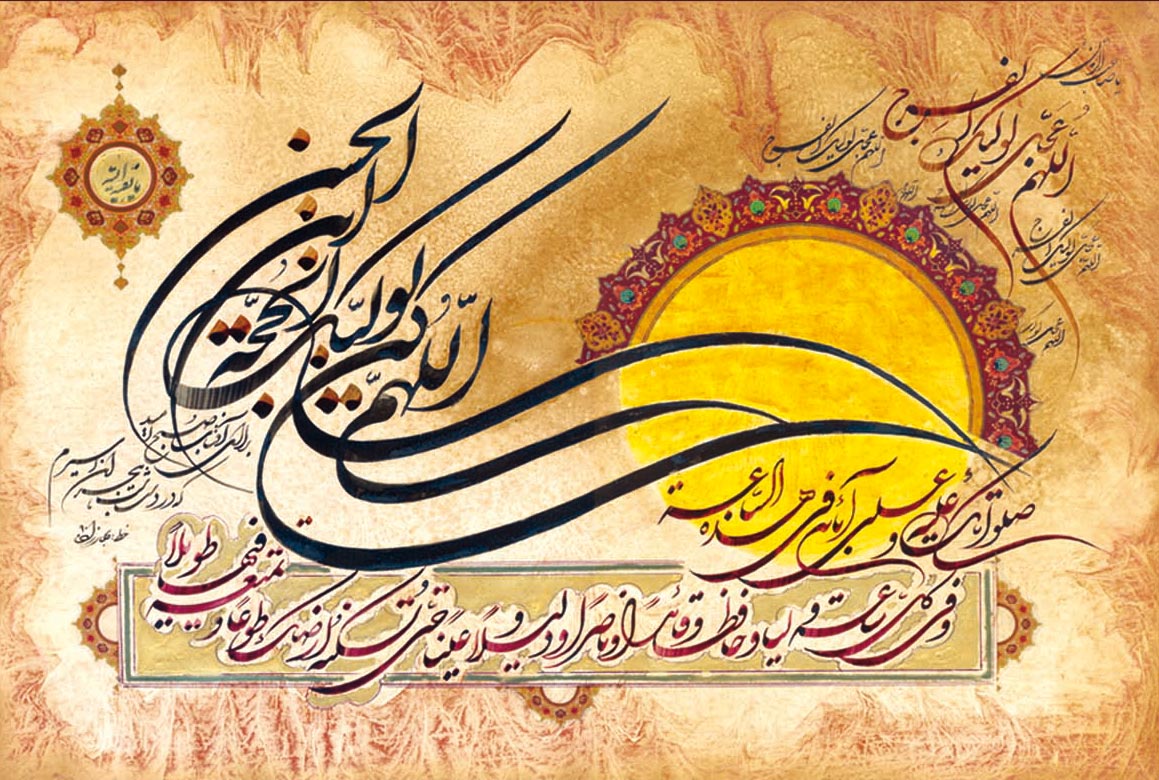 یا بقیة الله
یا صاحب الزمان
اللهم عجل لولیک الفرج
اللهم عجل لولیک الفرج
اللهم عجل لولیک الفرج
اللهم عجل لولیک
اللهم کن لولیک الحجة ابن الحسن
صلواتک علیه و علی آبائه فی هذه الساعة
و فی کل ساعة ولیا و حافظا و قائدا و ناصرا و دلیلا و عینا حتی تسکنه ارضک طوعا و تمتعه فیها طویلا